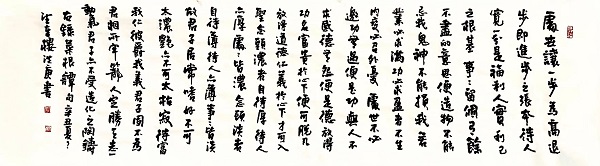 處世讓一步為高退
步即進步之張本待人
寬一分是福利人實利己
之根基事事留個有餘
不盡的意思便造物不能
忌我鬼神不能損我若
業必求滿功必求盈者不生
內變必召外憂處世不必
邀功無過便是功與人不
求感德無怨便是德放得
功名富貴之心下便可脫凡
放得道德仁義之心下才可入
聖念頭濃者自待厚待人
亦厚處處皆濃念頭淡者
自待薄待人亦薄事事皆淡
故君子居常嗜好不可
太濃艷亦不可太枯寂彼富
我仁彼爵我義君子固不為
君相所牢籠人定勝天志一
動氣君子亦不受造化之陶鑄
右錄菜根譚句辛丑夏